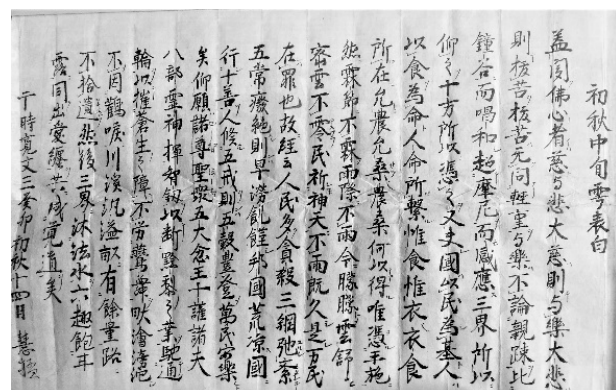 初秋中旬雩表白
盖聞佛心者慈与悲大慈則与樂大悲
則拔苦拔苦无問牲室与樂不論親疎比
鐘谷而唱和超摩尼而感應三界所以
仰之十方所以憑之又史國以民為基人
以食為命人命所繫惟食惟衣衣食
所在允農允桑農桑何以得唯憑干施
然霖節不霖雨際不雨今朦朦雲錦
密雲不零民祈神天不雨既久是万民
在罪也故經云人民多貪殺三綱弛紊
五常廢絶則旱澇飢饉升國荒凉國
行十善人修五戒則五穀豊登萬民安樂
矣仰願諸尊聖衆五大忿王十護諸大
八部霊神揮智釼以断黔黎之業馳通
輪以摧蒼生之障不労鸞舞畎澮湛溢
不因鸛唳川濱汎溢畝有餘量路
不拾遺然後三界沐法水六趣飽耳
露同出愛纏共成覚道矣
于時寛文三癸卯初秋十四日